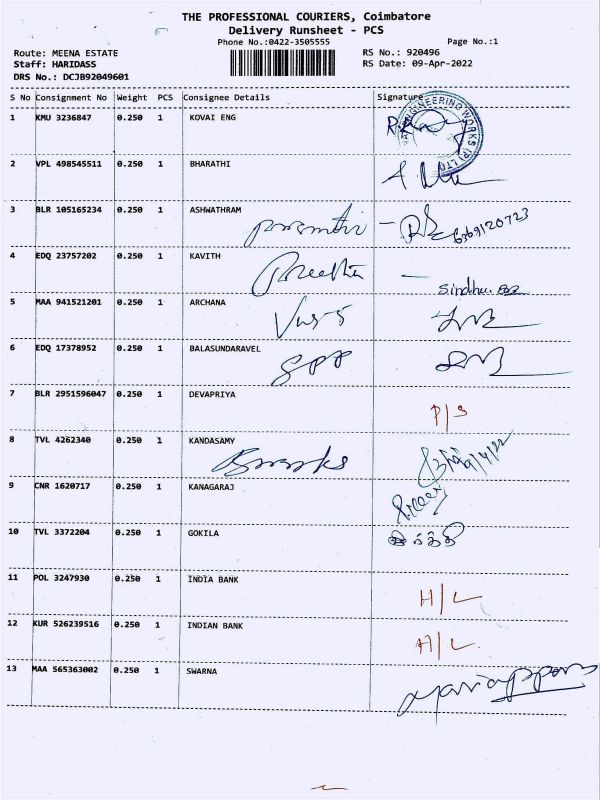 THE PROFESSIONAL COURIERS, Coimbatore
Delivery Runsheet - PCS
Phone No.:0422-3505555 Page No.:1
Route: MEENA ESTATE RS No.: 920496
Staff: HARIDASS RS Date: 09-Apr-2022
DRS No.: DCJB92049601
S No Consignment No Weight PCS Consignee Details Signature
1 KMU 3236847 0.250 1 KOVAI ENG
ENGINEERING WORKS (P) LTD
2 VPL 498545511 0.250 1 BHARATHI
3 BLR 105165234 0.250 1 ASHWATHRAM
6369120723
4 EDQ 23757202 0.250 1 KAVITH
Preetha
Sindhu
5 MAA 941521201 0.250 1 ARCHANA
6 EDQ 17378952 0.250 1 BALASUNDARAVEL
7 BLR 2951596047 0.250 1 DEVAPRIYA
P/S
8 TVL 4262340 0.250 1 KANDASAMY
9/4/22
9 CNR 1620717 0.250 1 KANAGARAJ
10 TVL 3372204 0.250 1 GOKILA
11 POL 3247930 0.250 1 INDIA BANK
H/L
12 KUR 526239516 0.250 1 INDIAN BANK
H/L
13 MAA 565363002 0.250 1 SWARNA
Mariappan